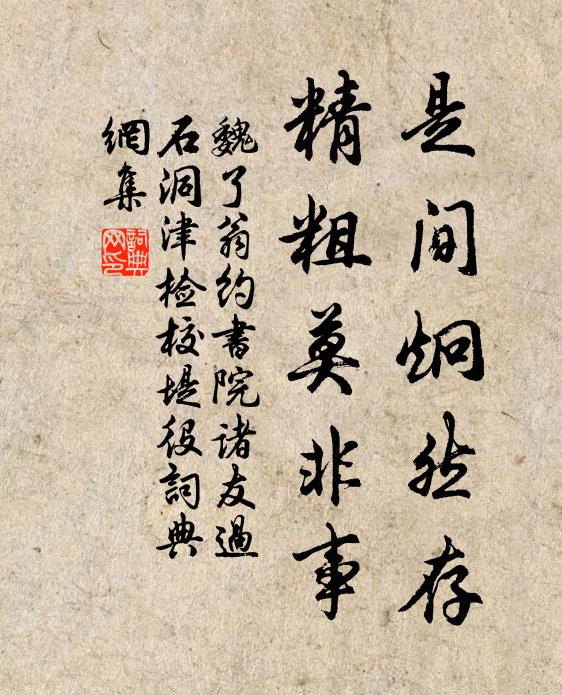 是间炯然存
精粗莫非事
魏了翁约書院诸友過
石洞津检校堤役詞典
網集
詞典
网印